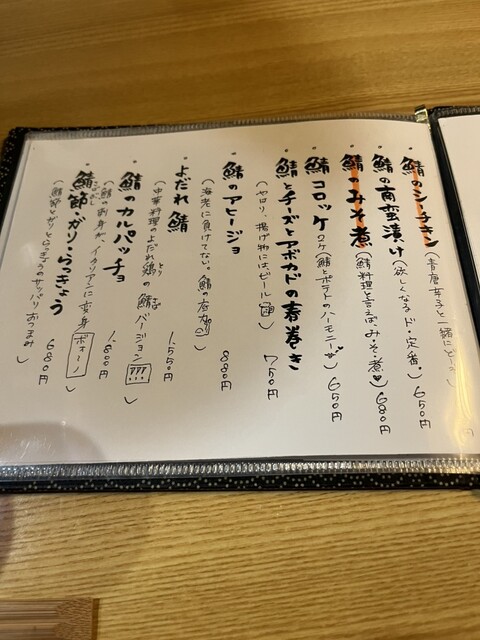 鯖のシーチキン(青唐辛子と一緒にどうぞ) 650円
鯖の南蛮漬け(欲しくなるド・定番。)
鯖のみそ煮(鯖料理と言えば、み・そ・煮♥) 680円
鯖コロッケ(鯖とポテトのハーモニー) 650円
鯖とチーズとアボカドの春巻き
(やはり、揚げ物にはビール) 750円
鯖のアヒージョ
(海老に負けてない。鯖の底力) 880円
よだれ鯖
(中華料理のよだれ鶏の鯖バージョン!!!) 1,550円
鯖のカルパッチョ
(鯖の刺身が、イタリアンに変身 ボォーノ) 1,800円
鯖節・ガリ・らっきょう
(鯖節とガリとらっきょうのサッパリおつまみ) 680円